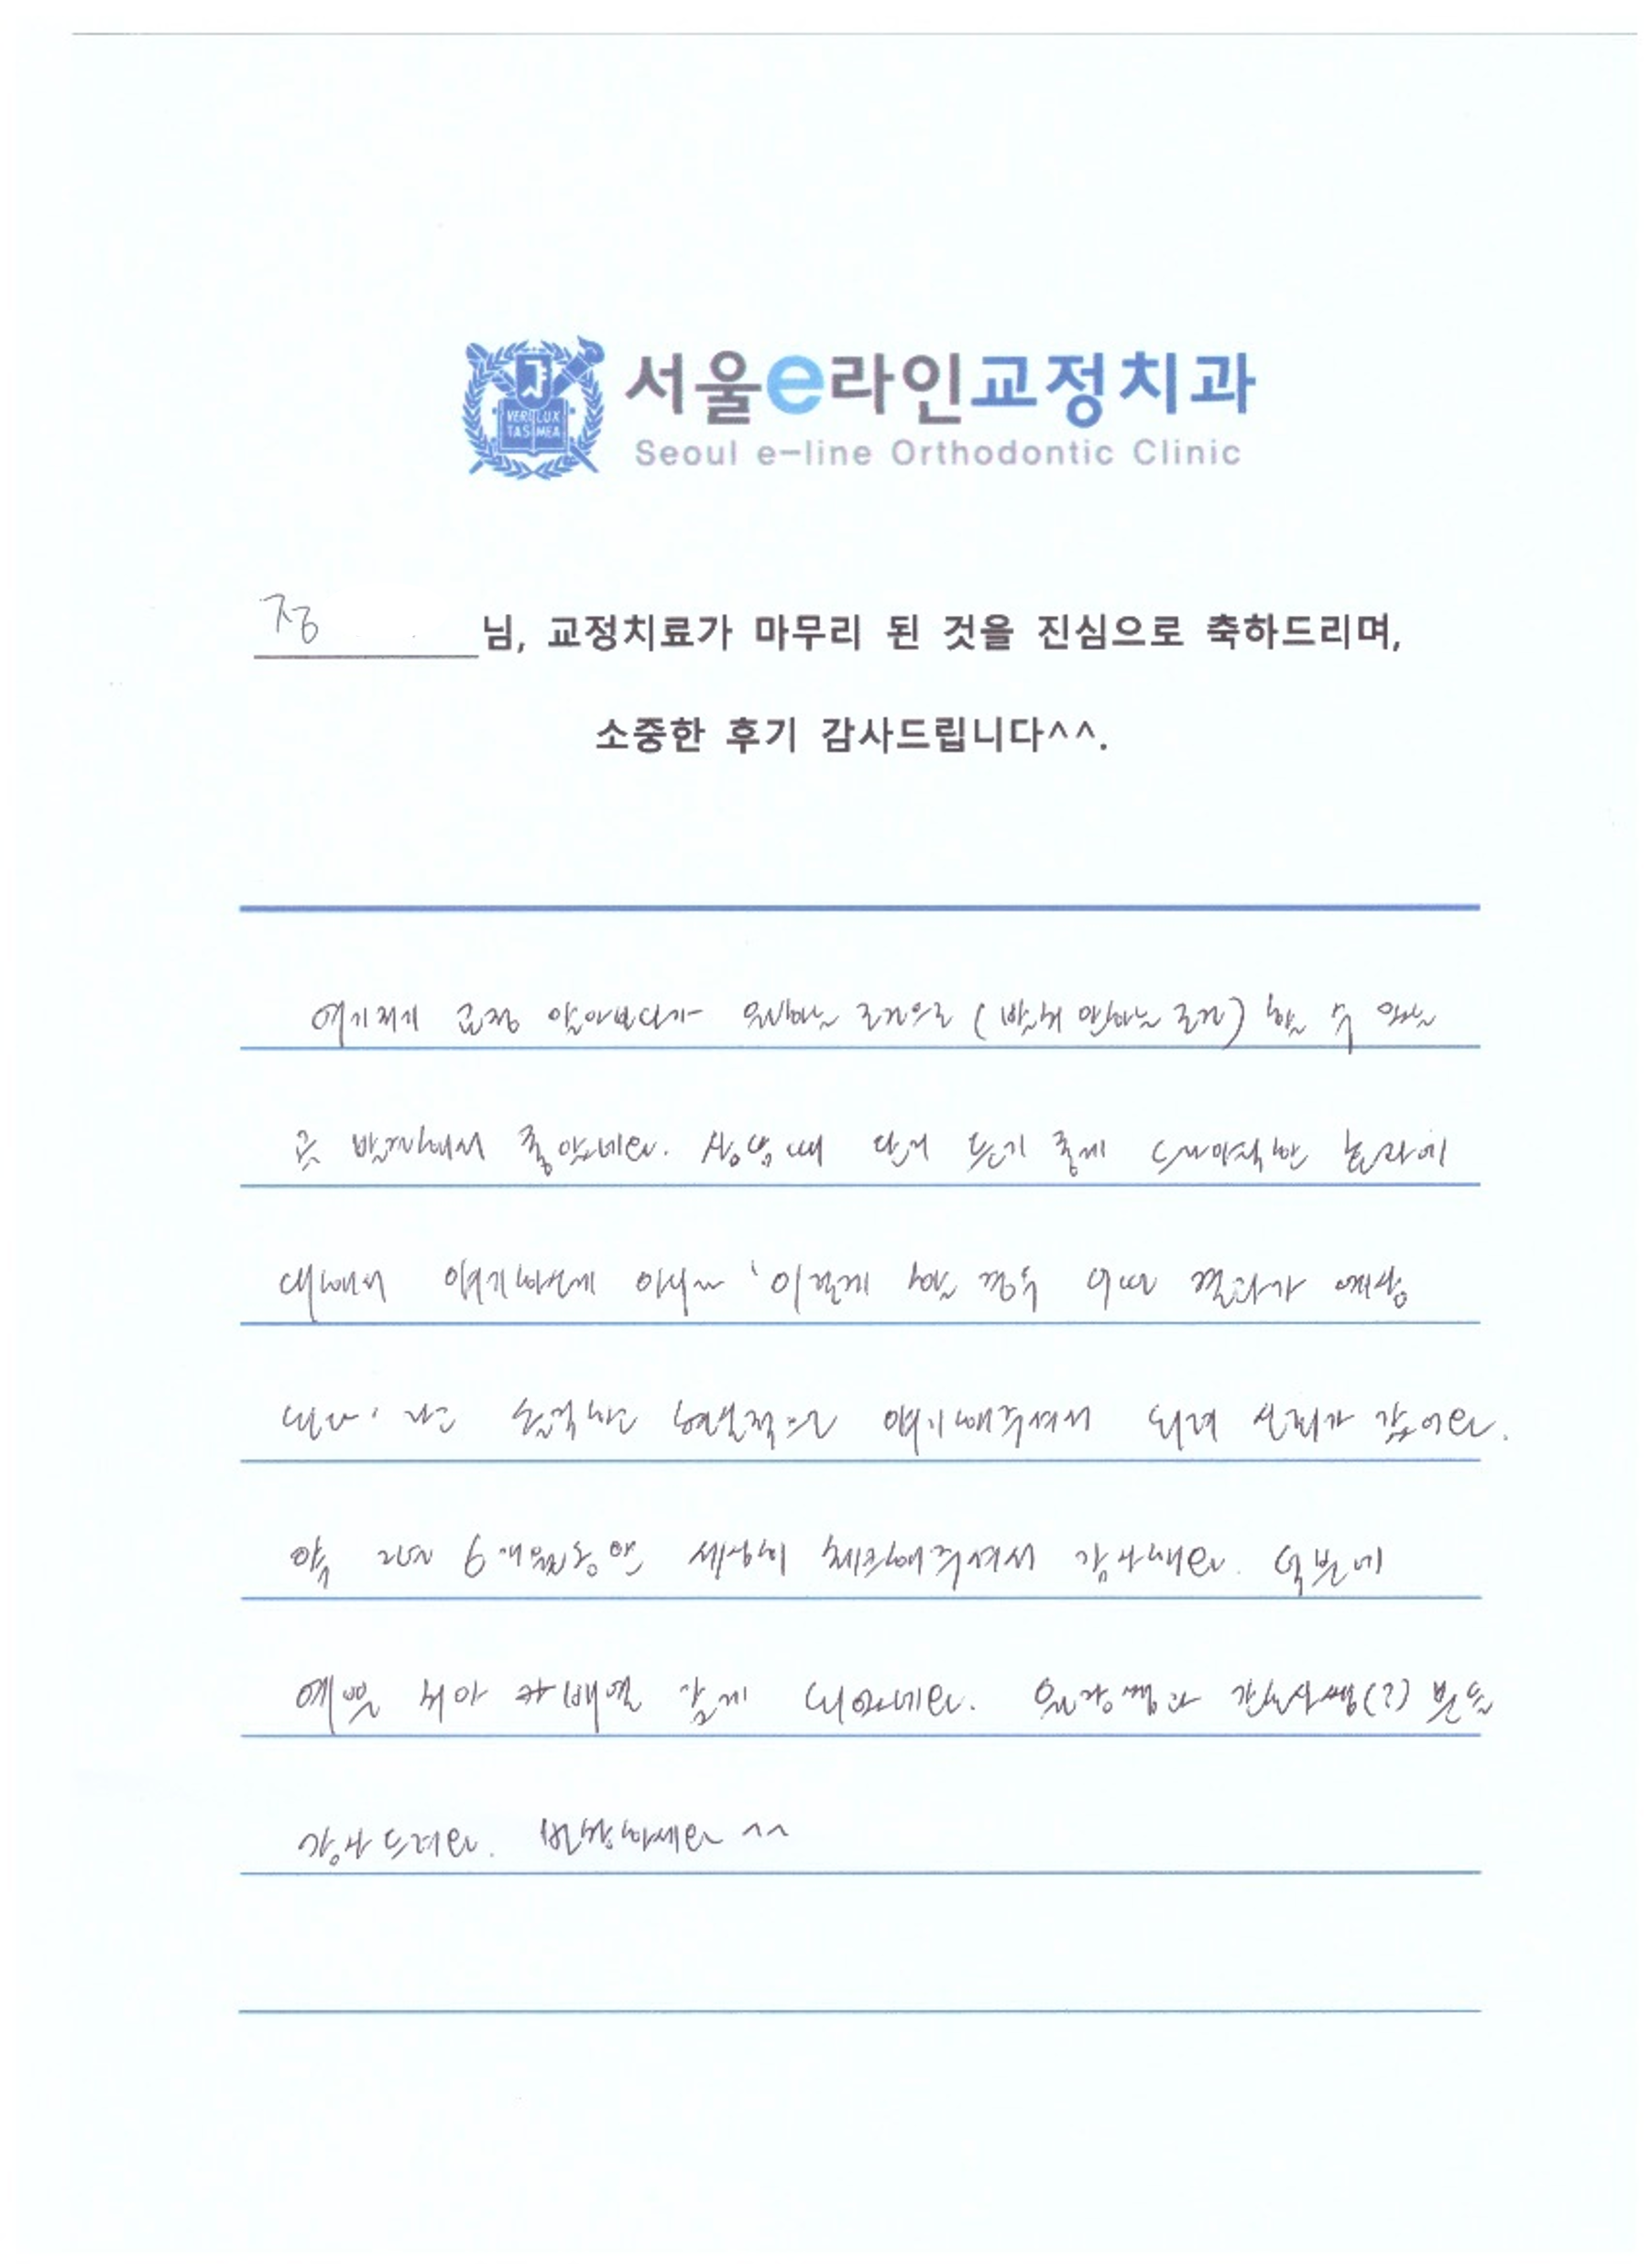 VERI LUX
TAS MEA
서울e라인교정치과
Seoul e-line Orthodontic Clinic
정 님, 교정치료가 마무리 된 것을 진심으로 축하드리며,
소중한 후기 감사드립니다^^.
여기저기 교정 알아보다가 원하는 조건으로 (발치 안하는 조건) 할 수 있는
곳 발견해서 좋았네요. 상담 때 단지 듣기 좋게 드라마틱한 효과에
대해서 얘기하는게 아니라 '이렇게 할 경우 어떤 결과가 예상
된다' 라고 솔직하고 현실적으로 얘기해주셔서 되려 신뢰가 갔어요.
약 2년 6개월동안 세심히 체크해주셔서 감사해요. 덕분에
예쁜 치아 배열 갖게 되었네요. 원장쌤과 간호사쌤(?) 분들
감사드려요. 번창하세요 ^^